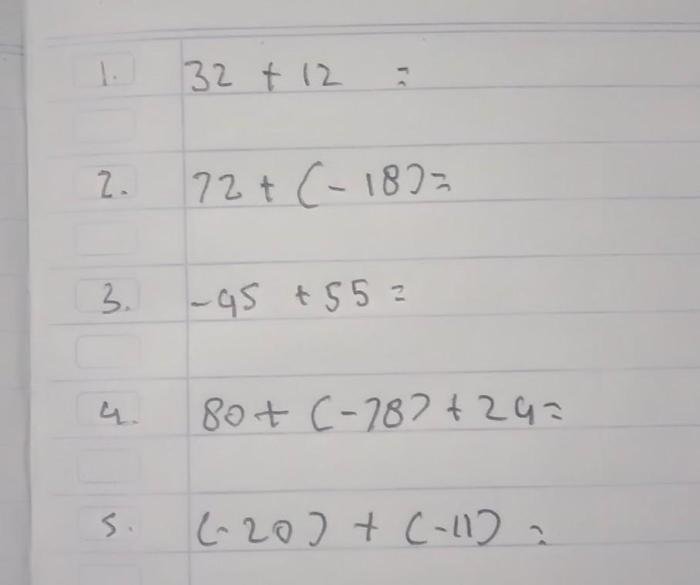 1. 32 + 12 =
2. 72 + (-18) =
3. -45 + 55 =
4. 80 + (-78) + 24 =
5. (-20) + (-11) =